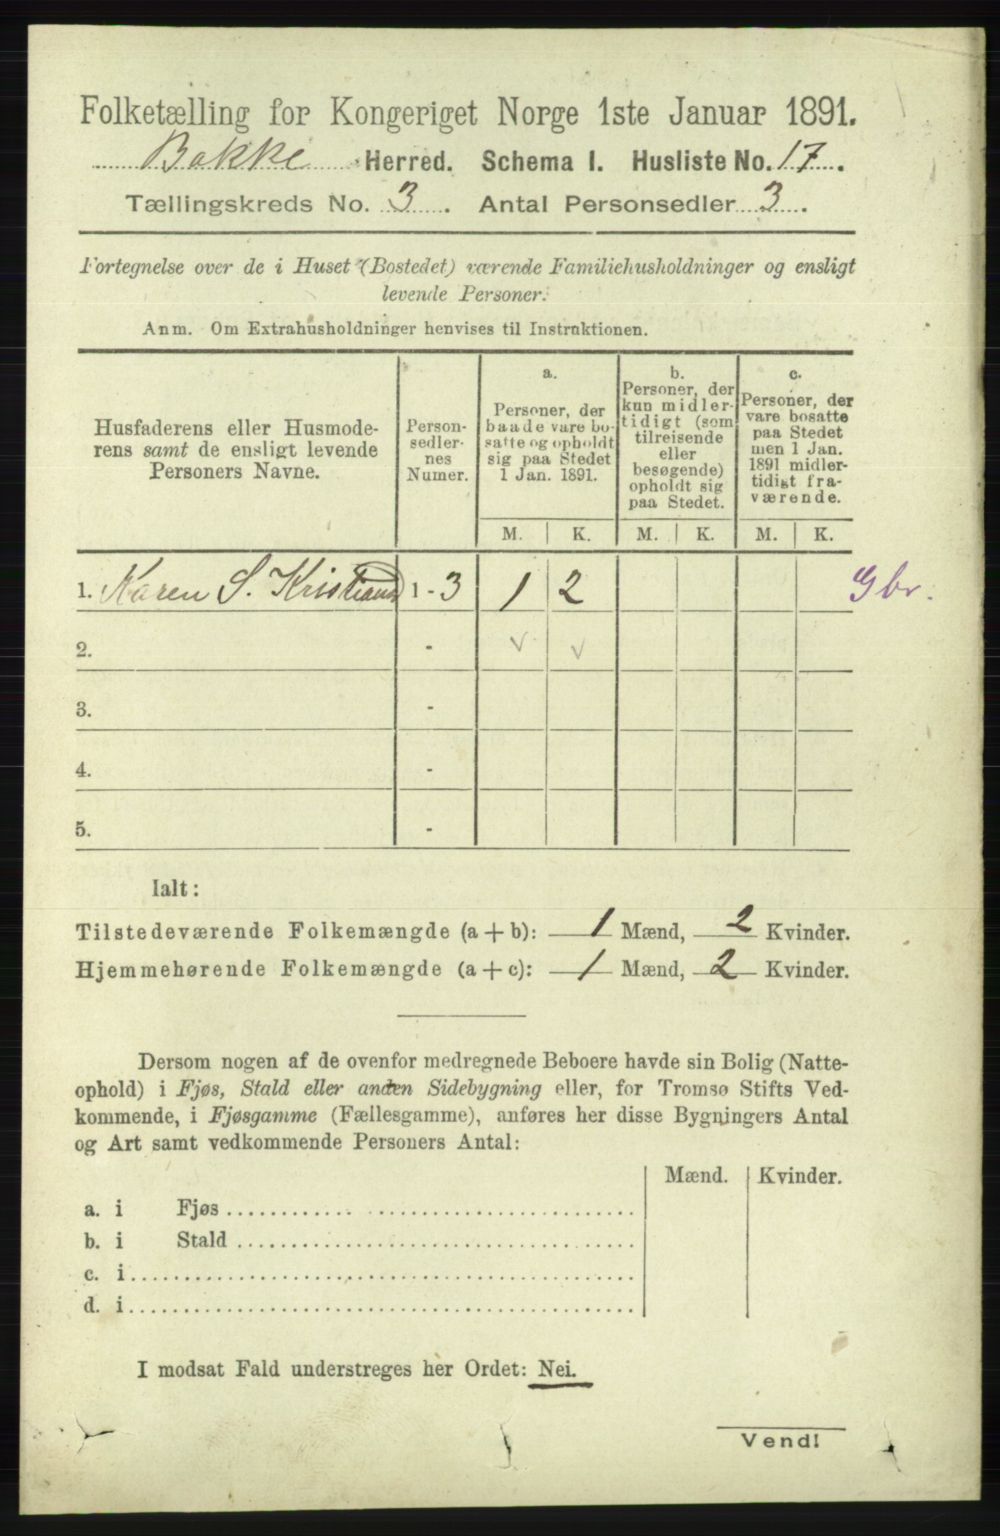 Folketælling for Kongeriget Norge 1ste Januar 1891.
Bakke Herred. Schema I. Husliste No. 17.
Tællingskreds No. 3. Antal Personsedler 3.
Fortegnelse over de i Huset (Bostedet) værende Familiehusholdninger og ensligt
levende Personer.
Anm. Om Extrahusholdninger henvises til Instruktionen.
Husfaderens eller Husmode-
rens samt de ensligt levende
Personers Navne.
Person-
sedler-
nes
Numer.
a.
Personer, der
baade vare bo-
satte og opholdt
sig paa Stedet
1 Jan. 1891.
b.
Personer, der
kun midler-
tidigt (som
tilreisende
eller
besøgende)
opholdt sig
paa Stedet.
c.
Personer, der
vare bosatte
paa Stedet
men 1 Jan.
1891 midler-
tidigt fra-
værende.
M. K. M. K. M. K.
1. Karen S. 1 - 3 1 2 Gbr.
2. - v v
3. -
4. -
5. -
Ialt:
Tilstedeværende Folkemængde (a + b): 1 Mænd, 2 Kvinder.
Hjemmehørende Folkemængde (a + c): 1 Mænd, 2 Kvinder.
Dersom nogen af de ovenfor medregnede Beboere havde sin Bolig (Natte-
ophold) i Fjøs, Stald eller anden Sidebygning eller, for Tromsø Stifts Ved-
kommende, i Fjøsgamme (Fællesgamme), anføres her disse Bygningers Antal
og Art samt vedkommende Personers Antal:
Mænd. Kvinder.
a. i Fjøs
b. i Stald
c. i
d. i
I modsat Fald understreges her Ordet: Nei.
Vend!